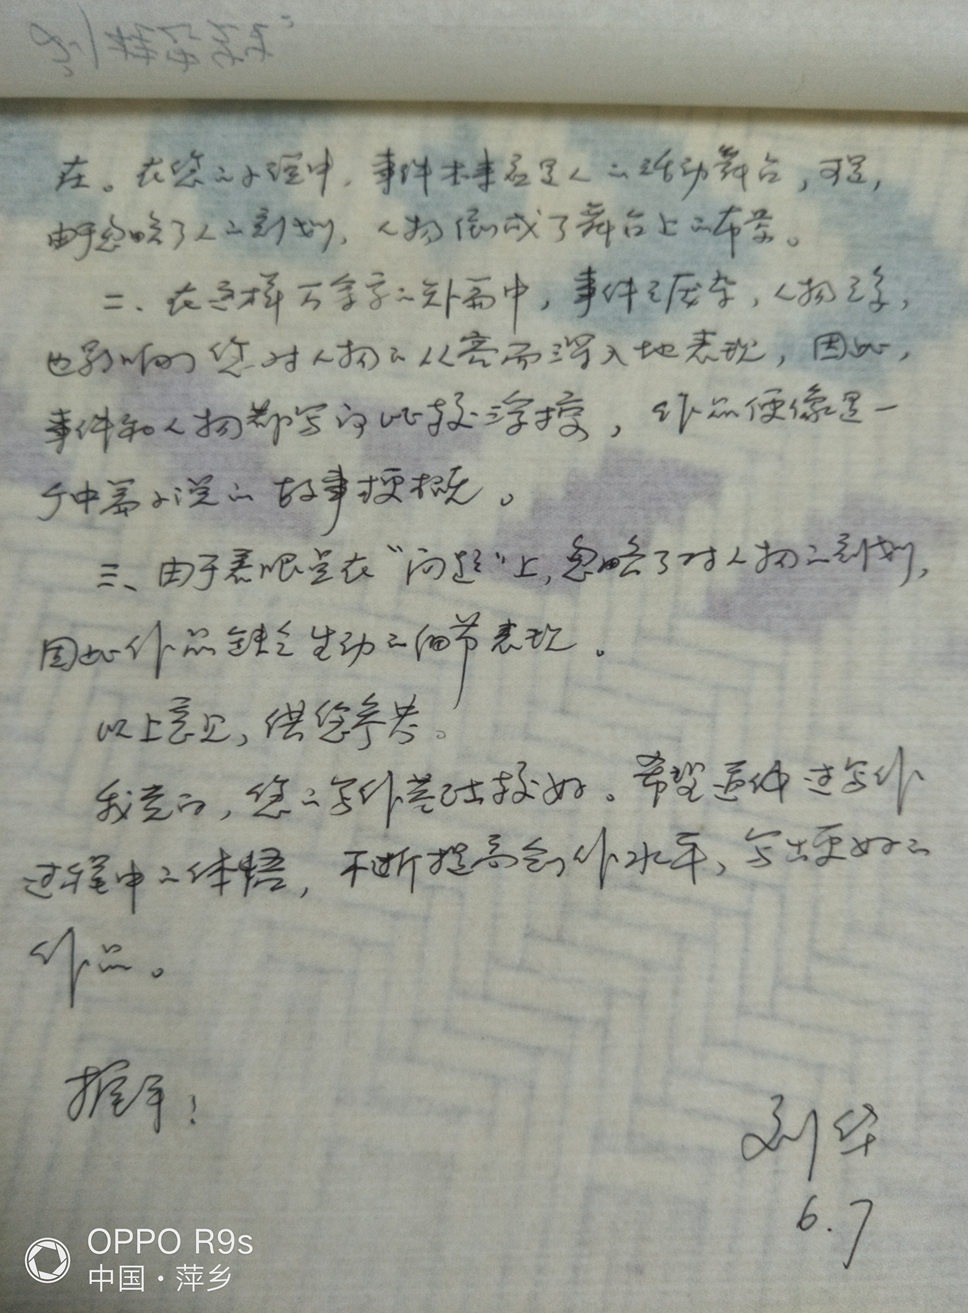 在。在您的小说中，事件本来应是人的活动舞台，可是，
由于忽略了人的刻划，人物倒成了舞台上的布景。
二、在这样万字的外篇中，事件之庞杂，人物之多，
也影响了您对人物的从容而深入地表现，因此，
事件和人物都写的比较浮搜，作品便像是一
个中篇小说的故事梗概。
三、由于着眼点在“问题”上，忽略了对人物的刻划，
因此作品缺乏生动的细节表现。
以上意见，供您参考。
我觉的，您的写作基础较好。希望通过写作
过程中的体悟，不断提高创作水平，写出更好的
作品。
握手！
刘华
6.7
OPPO R9s
中国·萍乡